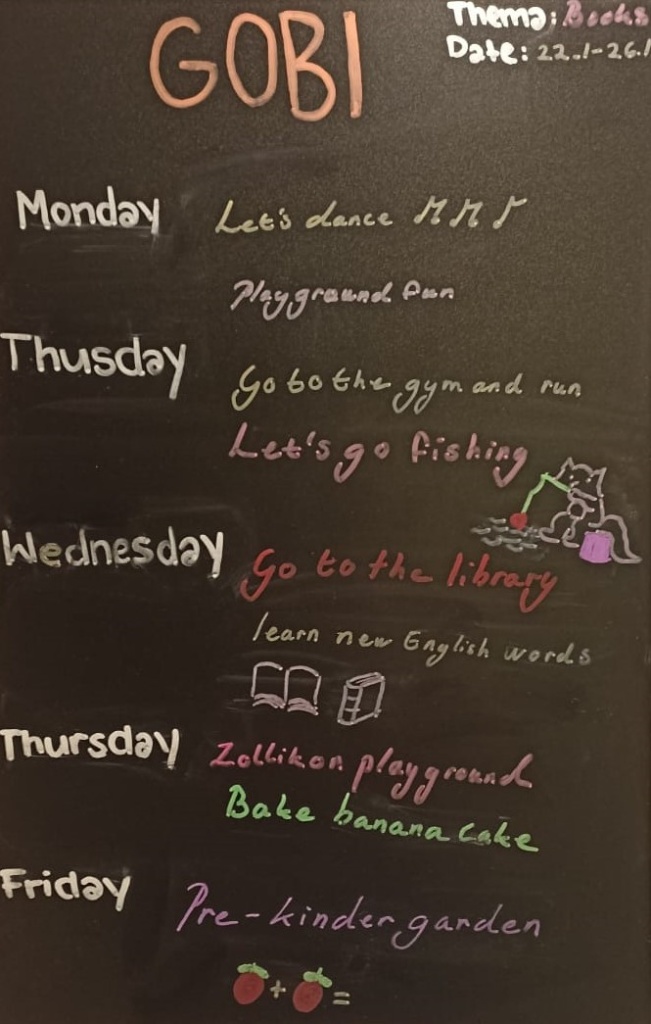 GOBI
Thema: Books
Date: 22.1-26.1
Monday
Let's dance
Playground fun
Thusday
Go to the gym and run
Let's go fishing
Wednesday
Go to the library
learn new English words
Thursday
Zollikon playground
Bake banana cake
Friday
Pre-kinder garden
+ =